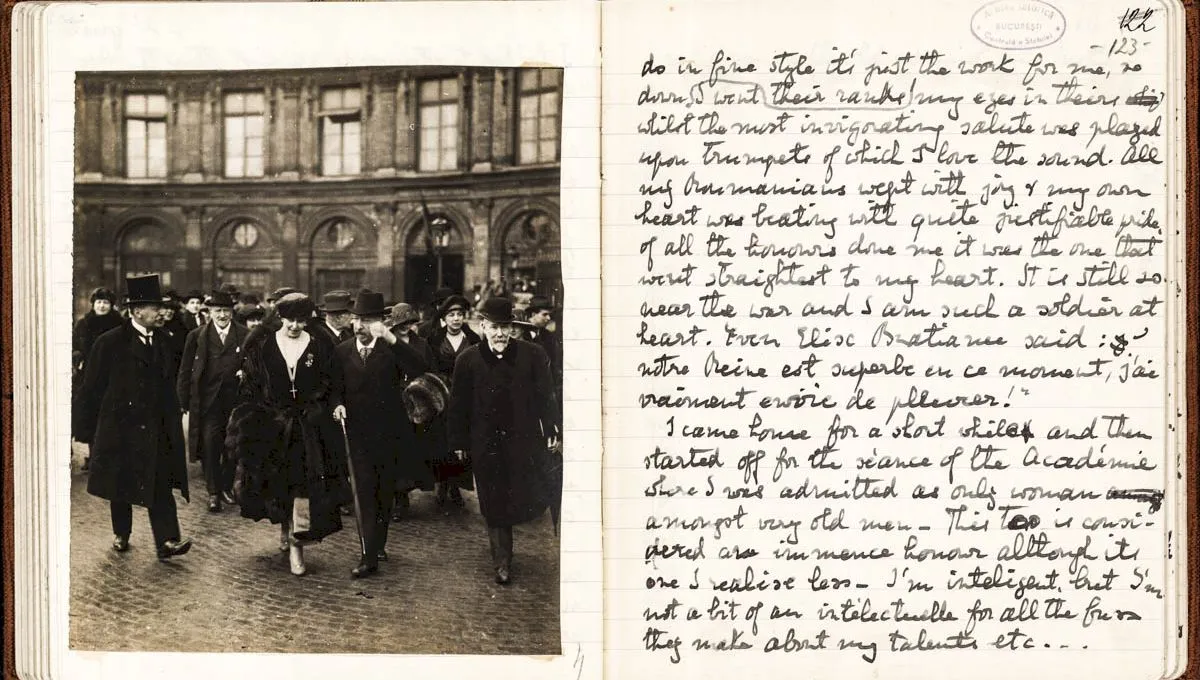 Arhiva Istorică
BUCUREȘTI
Centrală a Statului
122
-123-
do in fine style it's just the work for me, so
down I went their ranks my eyes in theirs
whilst the most invigorating salute was played
upon trumpets of which I love the sound. All
my Roumanians wept with joy & my own
heart was beating with quite justifiable pride.
of all the honours done me it was the one that
went straightest to my heart. It is still so
near the war and I am such a soldier at
heart. Even Elise Bratianu said :
notre Reine est superbe en ce moment, j'ai
vraiment envie de pleurer!"
I came home for a short while and then
started off for the séance of the Académie
where I was admitted as only woman
amongst very old men - This too is consi-
dered an immence honour although its
one I realise less - I'm inteligent, but I'm
not a bit of an intélectuelle for all the fuss
they make about my talents etc. . . .